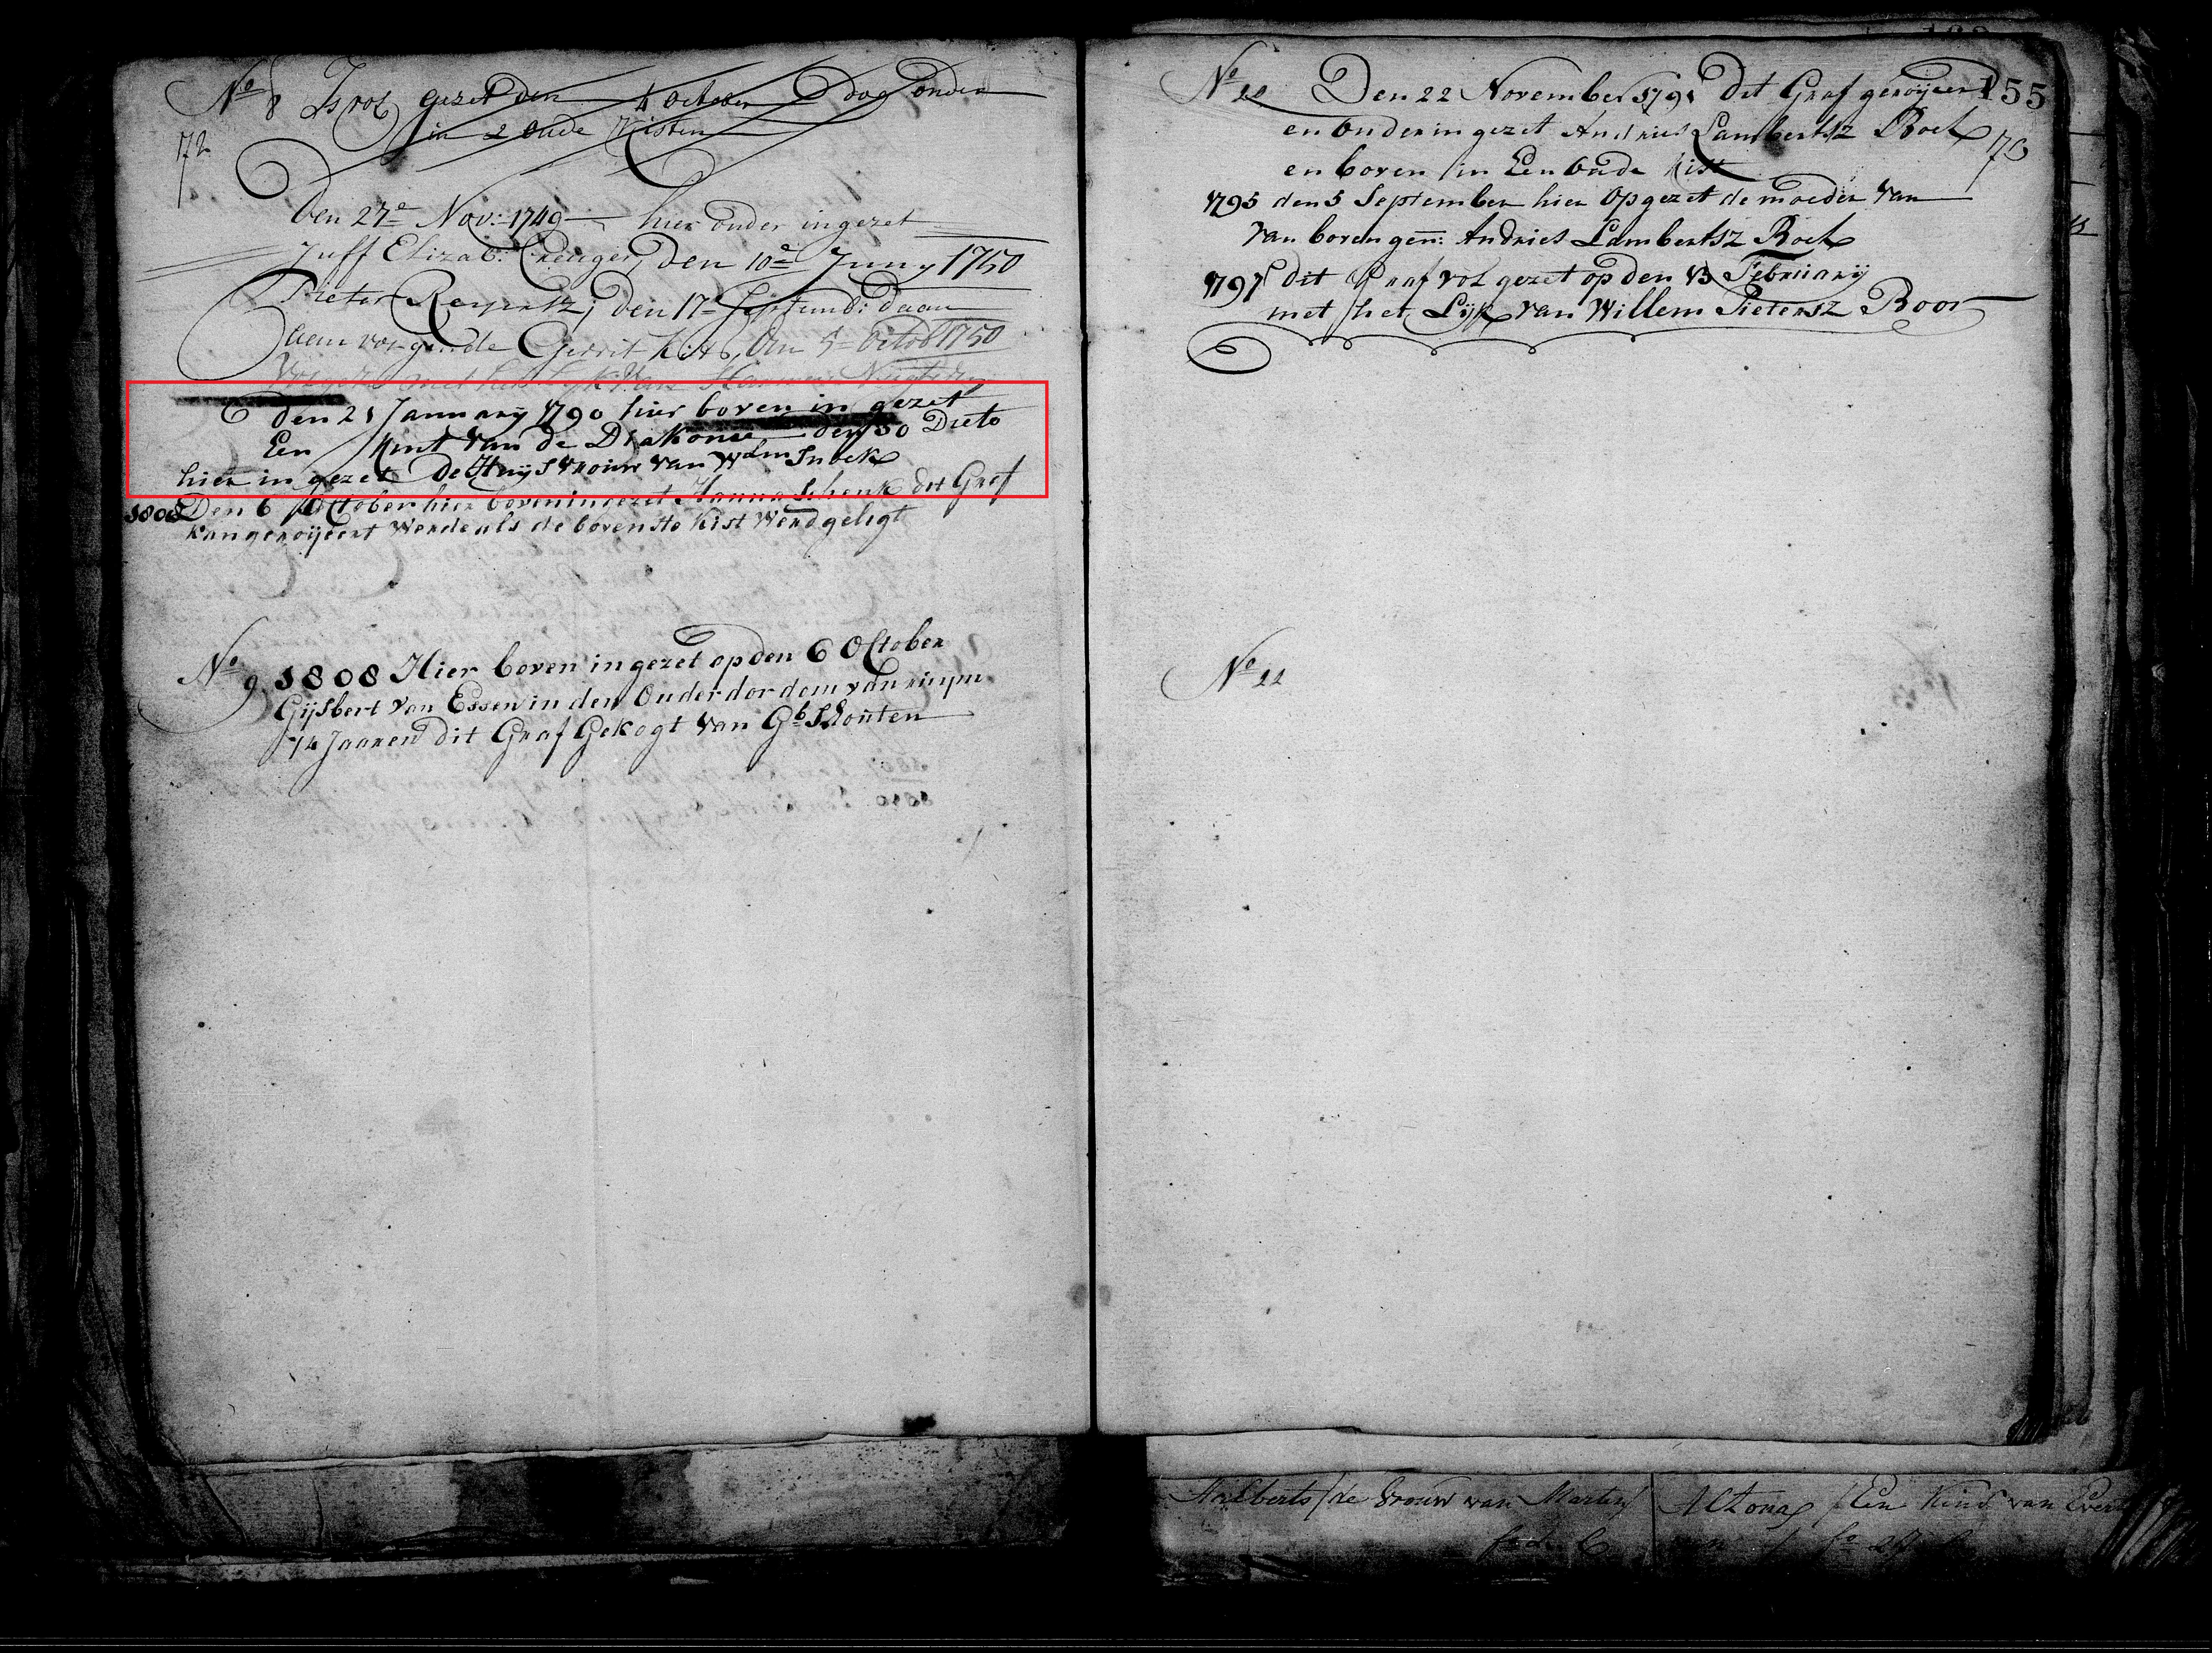 No 8 Is vol gezet den 4 October Dog onder
in 2 oude Kisten
172
Den 27e Nov: 1749 hier onder ingezet
Juff Elizab: Creuger, Den 10e Juny 1750
Pieter Reyertz; Den 17e Septemb: daar
aan volgende Gerrit Kits, den 5e Octob 1750
Volgezet met het Lyk Van Harmen
den 21 Jannuarij 1790 hier boven in gezet
Een Kint van de Diakonie den 30 Dieto
hier in gezet De Huijsvrouw van Wdm Snoek
1808 Den 6 October hier boven in gezet Hanna Schenk dit Graf
kan geroijeert Werde als de bovenste Kist Werd geligt
No 9 1808 Hier boven in gezet op den 6 October
Gijsbert van Essen in den Ouderdordom van ruijm
74 Jaaren dit Graf Gekogt van Gb Schouten
155
No 10 Den 22 November 1791 Dit Graf geroijeert
en onder in gezet Andries Lambertsz Roek
73
en boven in Een Oude Kist
1795 den 5 September hier Op gezet de moeder van
van boven gen: Andries Lambertsz Roek
1797 dit Graf vol gezet op den 13 Februarij
met het Lijk van Willem Pietersz Boor
No 11
Aelberts de Vrouw van Marten Altona Een Kind van Evert